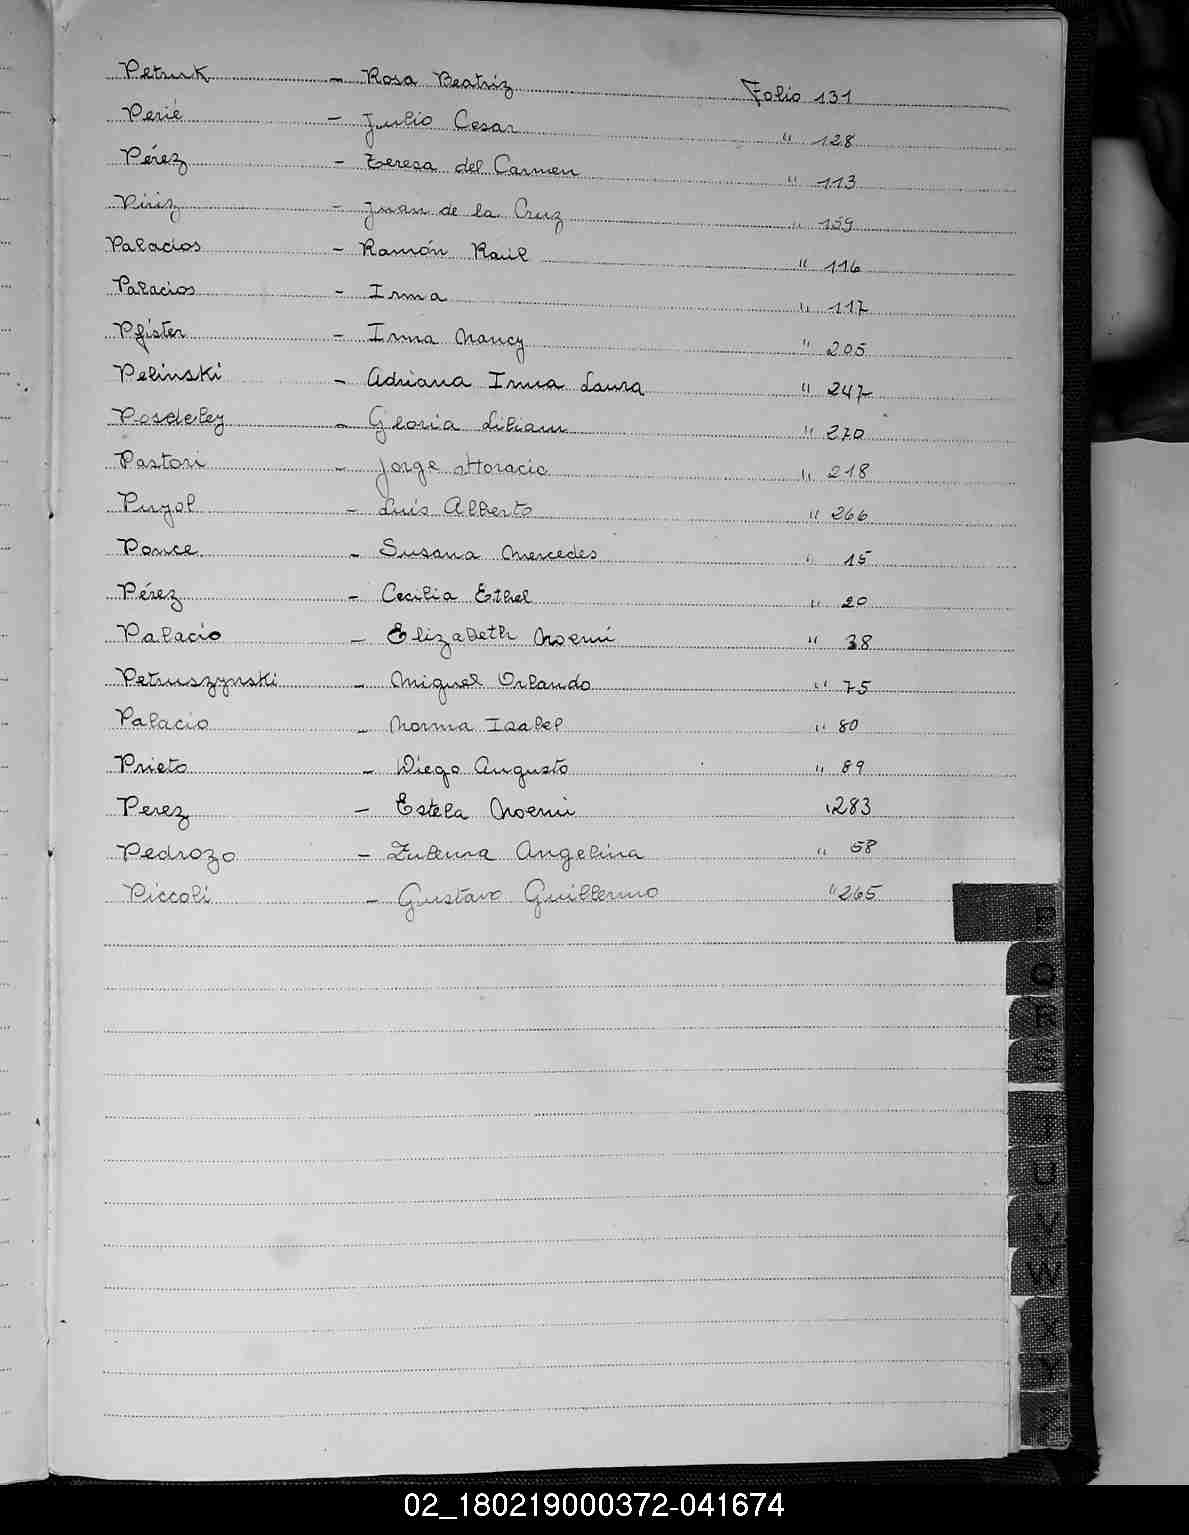 Petruk - Rosa Beatriz Folio 131
Perié - Julio Cesar " 128
Pérez - Teresa del Carmen " 113
Píriz - Juan de la Cruz " 159
Palacios - Ramón Raúl " 116
Palacios - Irma " 117
Pfister - Irma Nancy " 205
Pelinski - Adriana Irma Laura " 247
Posdeley - Gloria Liliam " 270
Pastori - Jorge Horacio " 218
Pujol - Luis Alberto " 266
Ponce - Susana Mercedes " 15
Pérez - Cecilia Ethel " 20
Palacio - Elizabeth Noemí " 38
Petruszynski - Miguel Orlando " 75
Palacio - Norma Isabel " 80
Prieto - Diego Augusto " 89
Perez - Estela Noemi 283
Pedrozo - Zulema Angelina " 58
Piccoli - Gustavo Guillermo " 265
P
Q
R
S
T
U
V
W
X
Y
Z
02_180219000372-041674